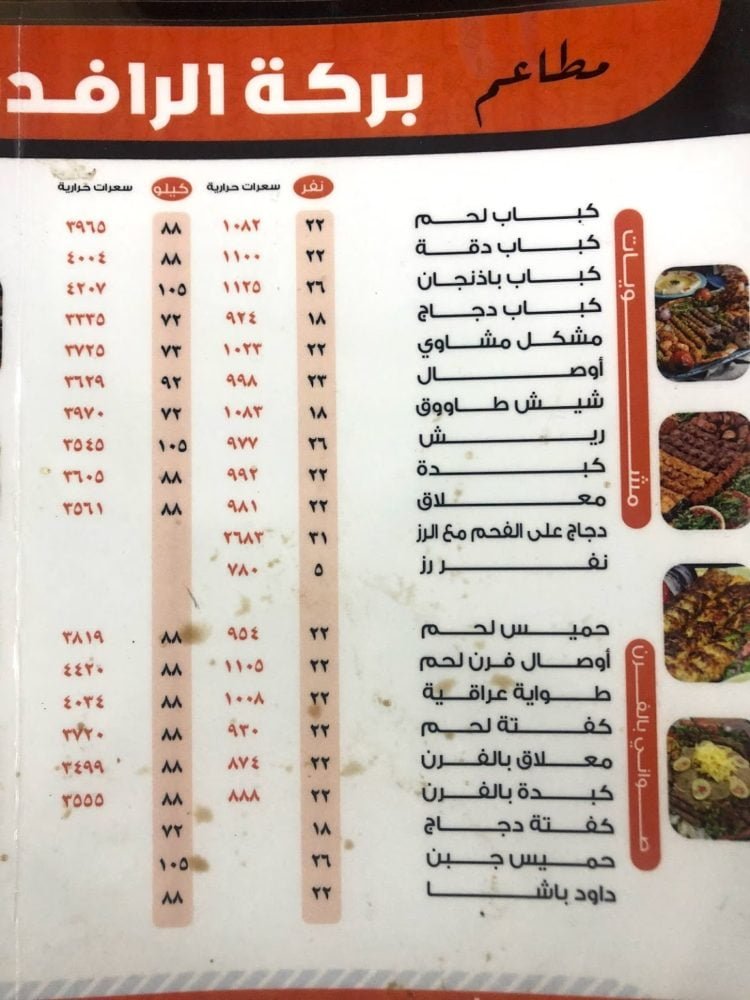 مطاعم
بركة الرافد
نفر سعرات حرارية كيلو سعرات حرارية
مشويات
كباب لحم ٢٢ ١٠٨٢ ٨٨ ٣٩٦٥
كباب دقة ٢٢ ١١٠٠ ٨٨ ٤٠٠٤
كباب باذنجان ٢٦ ١١٢٥ ١٠٥ ٤٢٠٧
كباب دجاج ١٨ ٩٢٤ ٧٢ ٣٣٣٥
مشكل مشاوي ٢٢ ١٠٢٣ ٧٣ ٣٧٢٥
أوصال ٢٣ ٩٩٨ ٩٢ ٣٦٢٩
شيش طاووق ١٨ ١٠٨٣ ٧٢ ٣٩٧٠
ريش ٢٦ ٩٧٧ ١٠٥ ٣٥٤٥
كبدة ٢٢ ٩٩٢ ٨٨ ٣٦٠٥
معلاق ٢٢ ٩٨١ ٨٨ ٣٥٦١
دجاج على الفحم مع الرز ٣١ ٢٦٨٣
نفر رز ٥ ٧٨٠
صواني بالفرن
حميس لحم ٢٢ ٩٥٤ ٨٨ ٣٨١٩
أوصال فرن لحم ٢٢ ١١٠٥ ٨٨ ٤٤٢٠
طواية عراقية ٢٢ ١٠٠٨ ٨٨ ٤٠٣٤
كفتة لحم ٢٢ ٩٣٠ ٨٨ ٣٧٢٠
معلاق بالفرن ٢٢ ٨٧٤ ٨٨ ٣٤٩٩
كبدة بالفرن ٢٢ ٨٨٨ ٨٨ ٣٥٥٥
كفتة دجاج ١٨ ٧٢
حميس جبن ٢٦ ١٠٥
داود باشا ٢٢ ٨٨